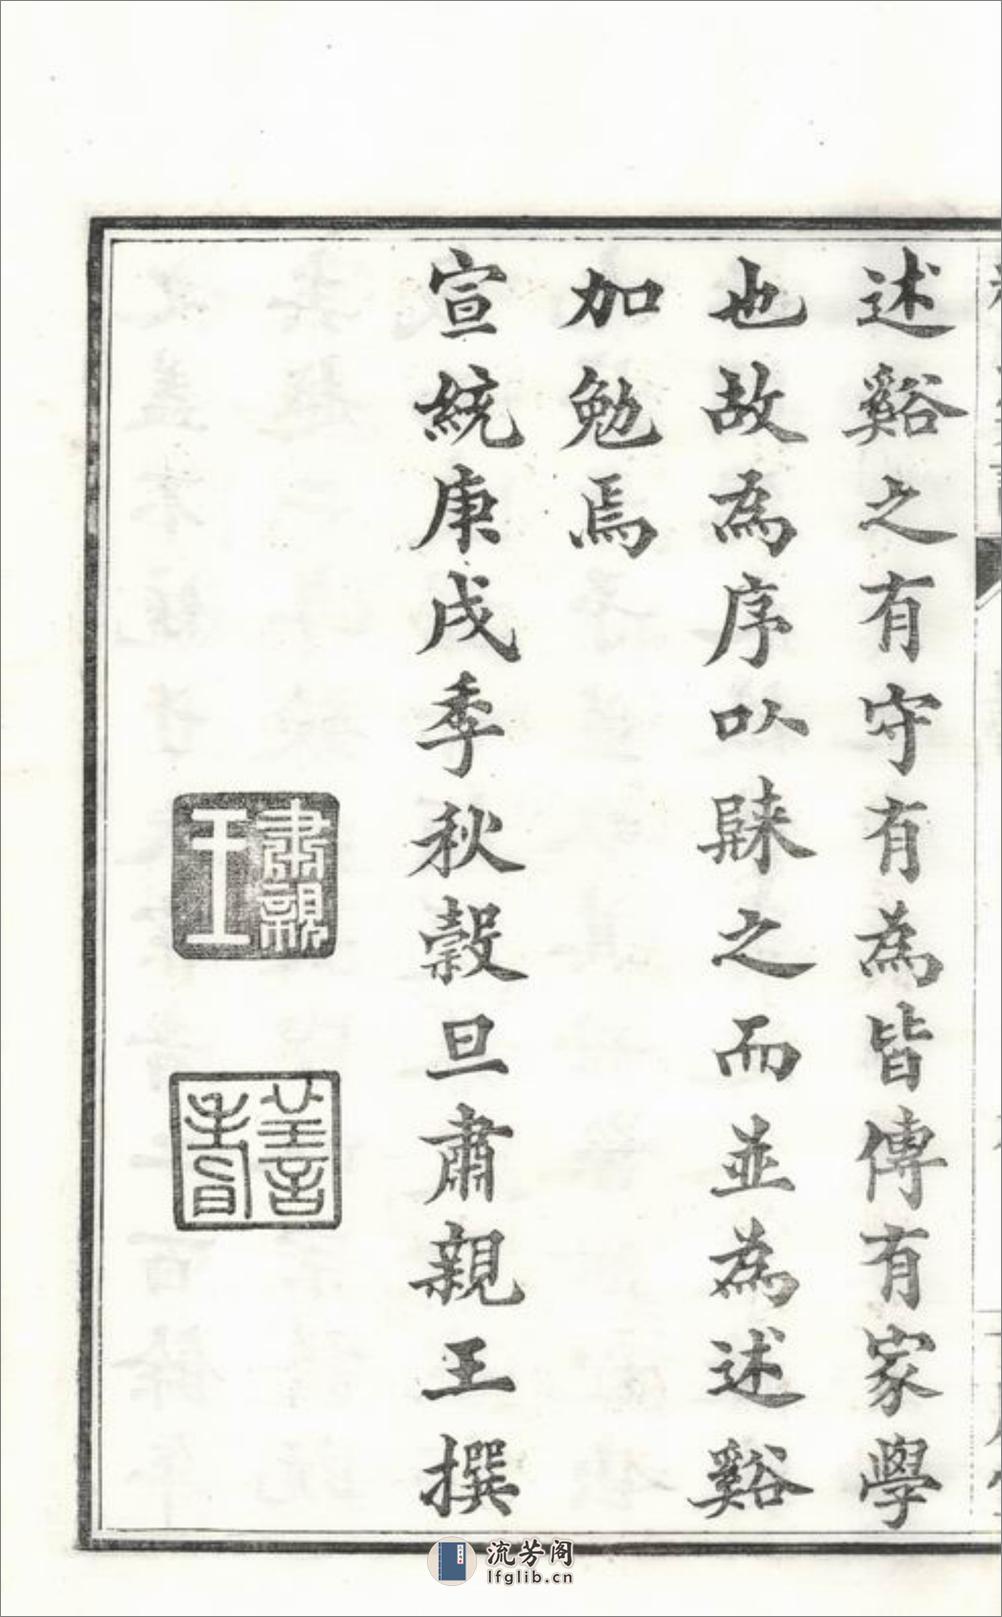 述谿之有守有為皆傳有家學
也故為序以睞之而並為述谿
加勉焉
宣統庚戌季秋穀旦肅親王撰
肅親王
善耆
流芳阁
lfglib.cn